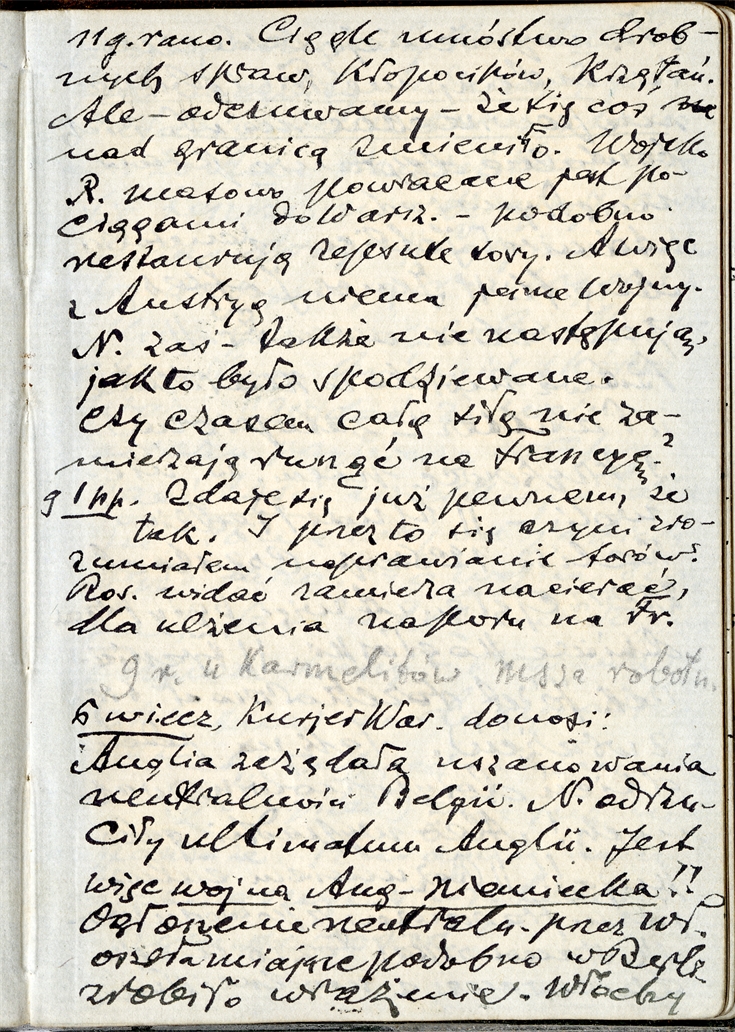 11 g. rano. Ciągle mnóstwo drob-
nych spraw, kłopocików, krzątań.
Ale – odczuwamy – że się coś
nad granicą zmieniło. Wojsko
R. masowo powracane jest po-
ciągami do Warsz. – podobno
restaurują zepsute tory. A więc
z Austryą niema jeszcze wojny.
N. zaś – także nie następują,
jak to było spodziewane.
Czy czasem całą siłą nie za-
mierzają runąć na Francyę?
g 1 pp. Zdaje się już pewnem, że
tak. I przez to się czyni zro-
zumiałem naprawianie torów.
Ros. widać zamierza nacierać,
dla ulżenia naporu na Fr.
9 r. u Karmelitów. msza robotn.
6 wiecz. Kurjer War. donosi:
Anglia zażądała uszanowania
neutralności Belgii. N. odrzu-
ciły ultimatum Anglii. Jest
więc wojna Ang-niemiecka!!
Ogłoszenie neutraln. przez Wł.
oszałamiające podobno w Berl.
zrobiło wrażenie. Włochy